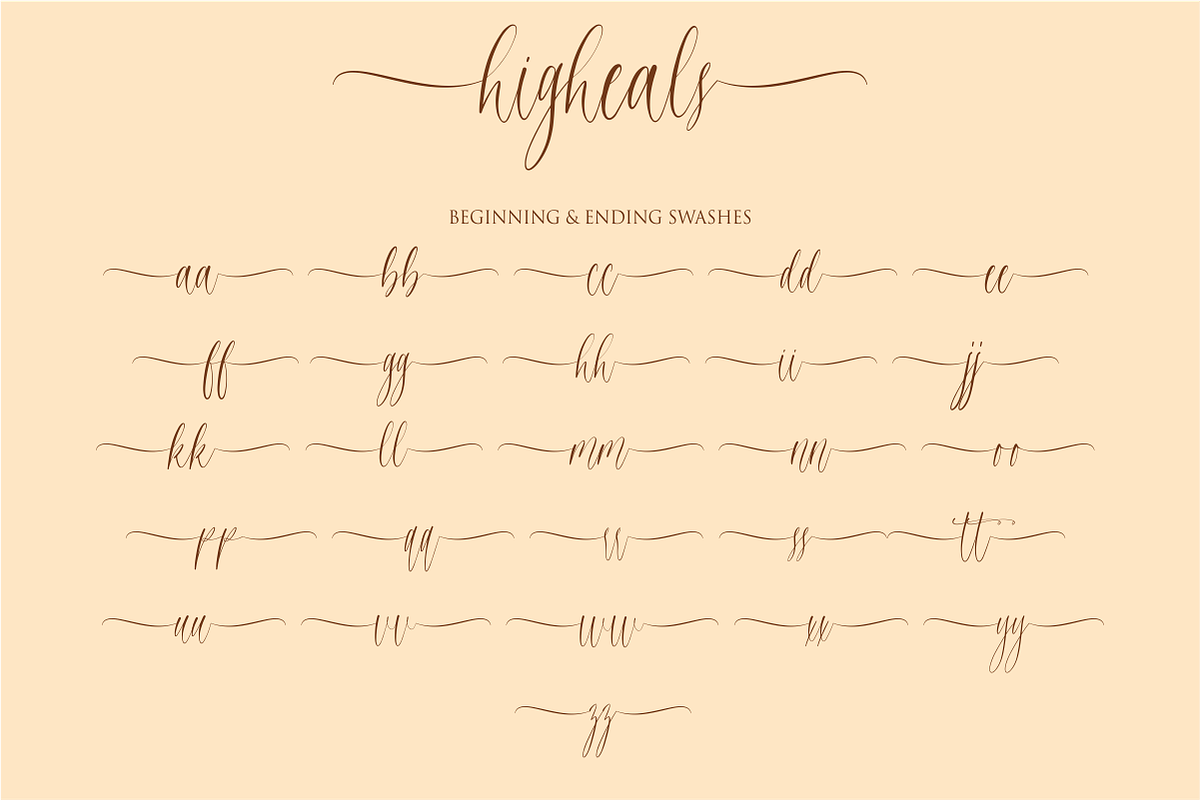 higheals
BEGINNING & ENDING SWASHES
aa bb cc dd ee
ff gg hh ii jj
kk ll mm nn oo
pp qq rr ss tt
uu vv ww xx yy
zz